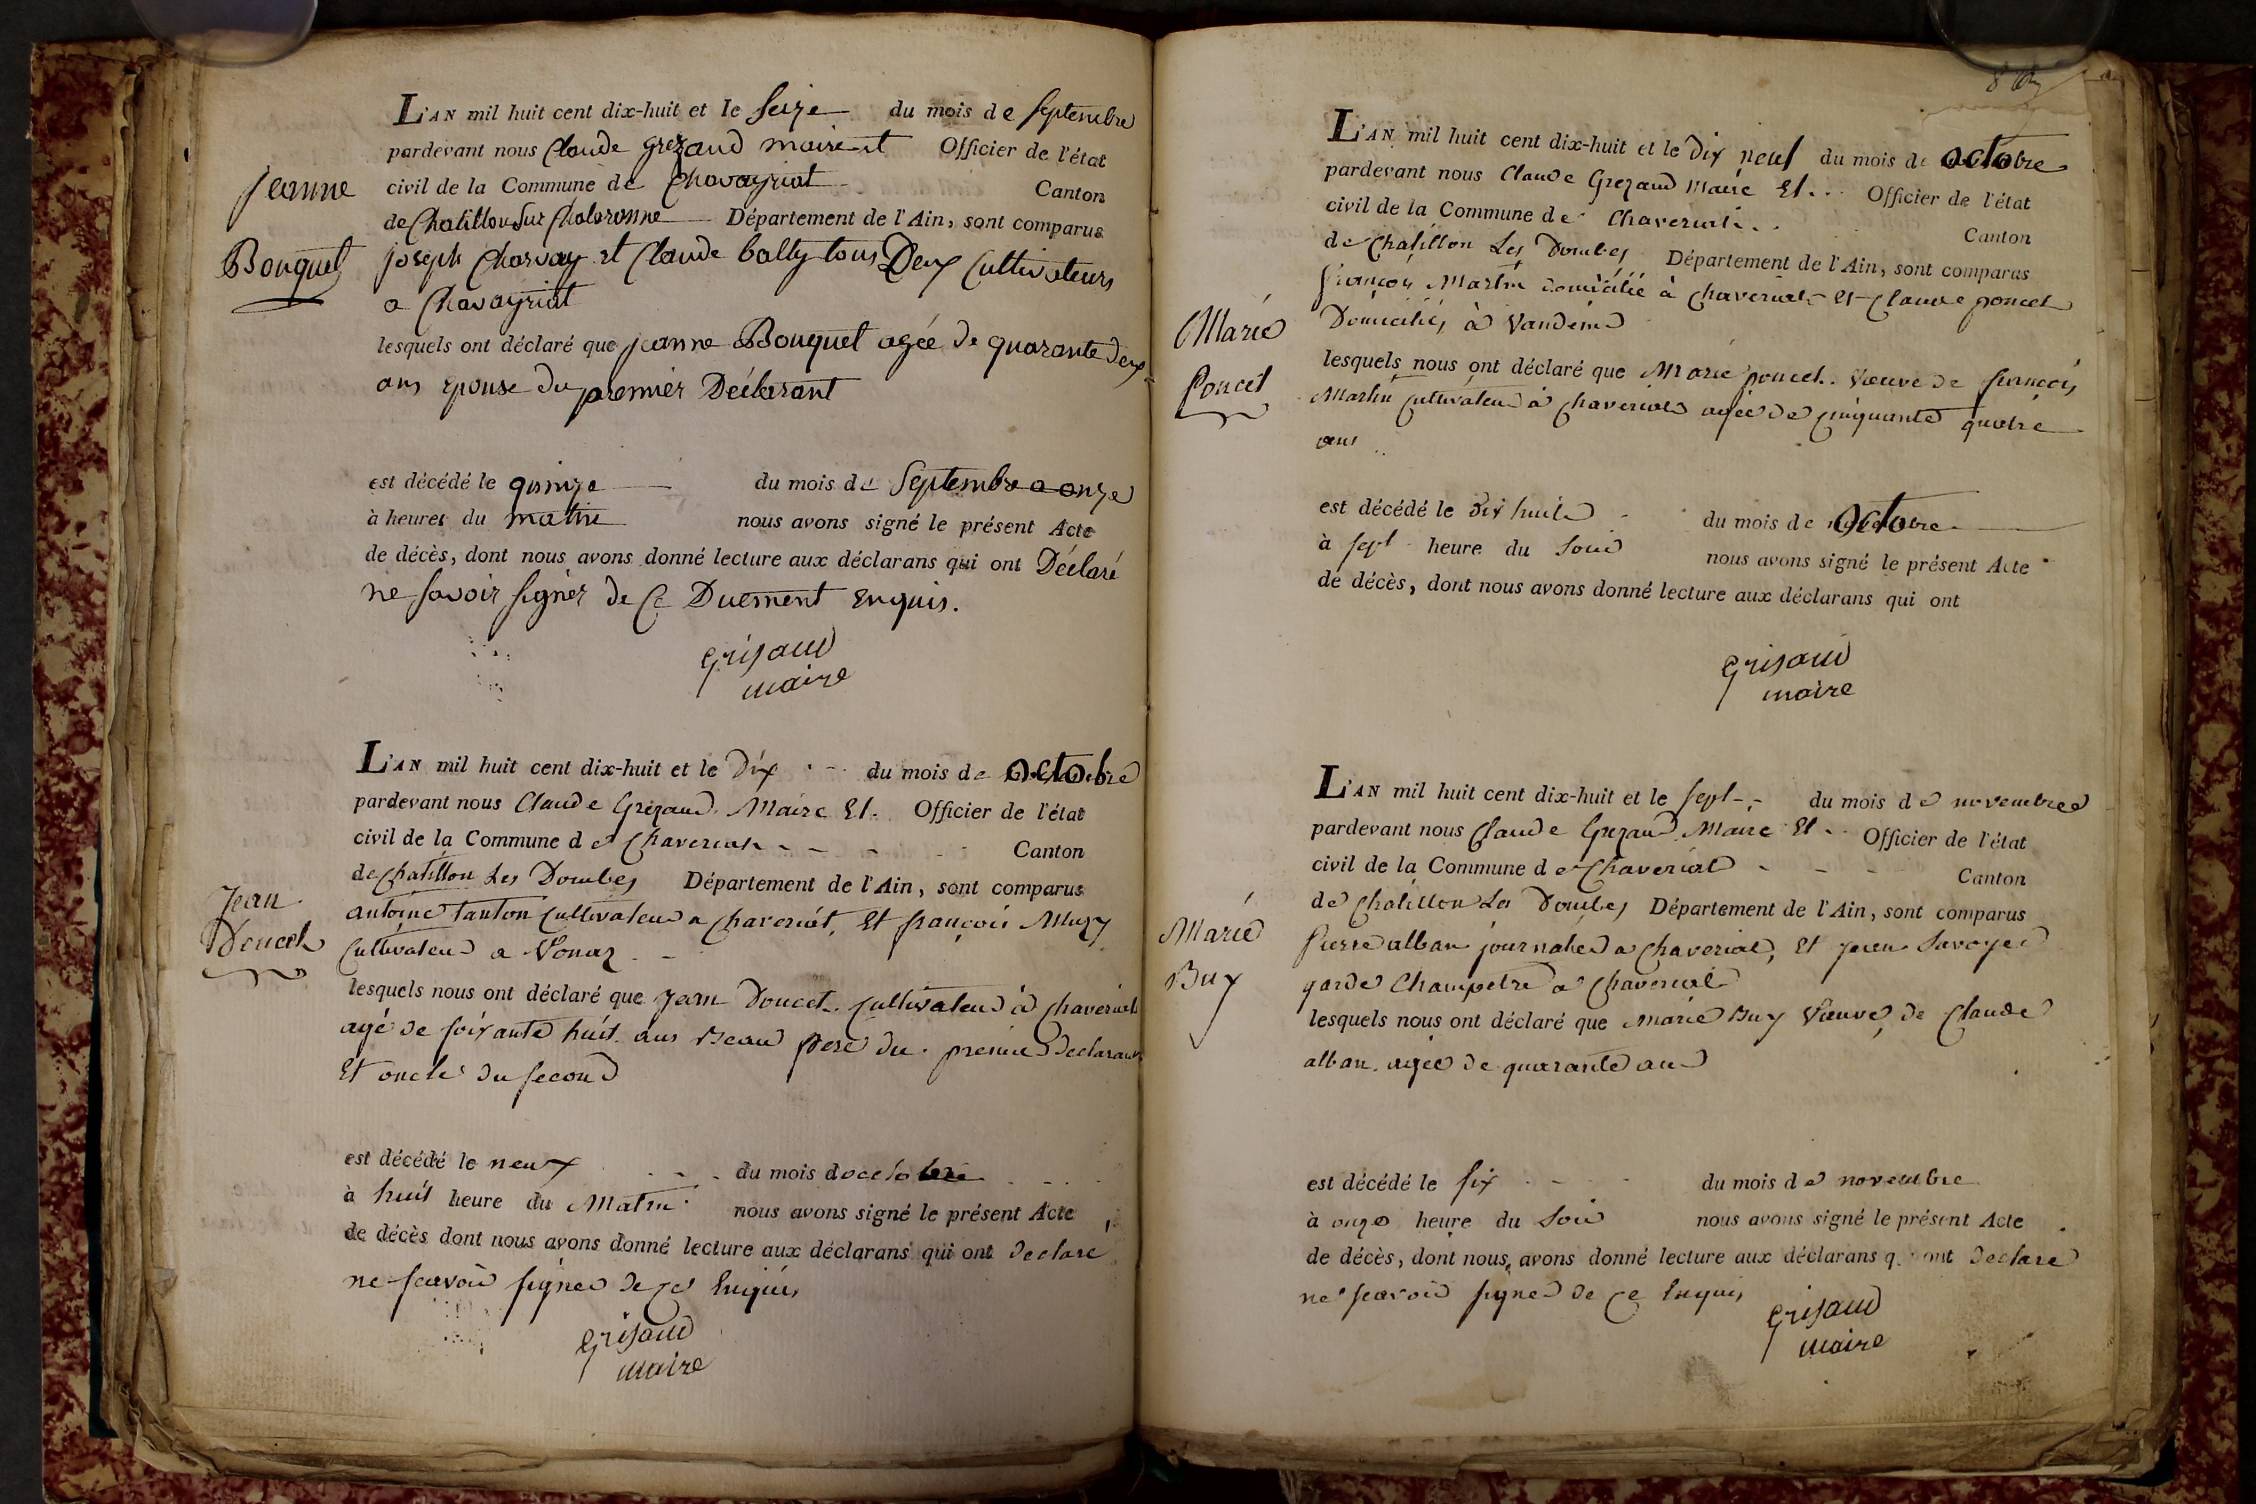 L'AN mil huit cent dix-huit et le Seize du mois de Septembre
pardevant nous Claude Grezaud maire et Officier de l'état
civil de la Commune de Chavayriat Canton
de Chatillon Sur Chalaronne Département de l'Ain, sont comparus
Jeanne
Bouquet
joseph Charvay et Claude bally tous Deux Cultivateurs
a Chavayriat
lesquels ont déclaré que jeanne Bouquet agée de quarante deux
ans Epouse du premier Déclarant
est décédé le quinze du mois de Septembre a onze
à heures du matin nous avons signé le présent Acte
de décès, dont nous avons donné lecture aux déclarans qui ont Déclaré
ne savoir signer de Ce Duement Enquis.
Grisaud
maire
L'AN mil huit cent dix-huit et le Dix du mois de Octobre
pardevant nous Claude Grezaud Maire Et. Officier de l'état
civil de la Commune de Chaveriat Canton
de Chatillon Les Dombes Département de l'Ain, sont comparus
Jean
Doucet
antoine tanton Cultivateur a Chaveriat, Et françois Muzy
Cultivateur a Vonaz
lesquels nous ont déclaré que Jean Doucet Cultivateur à Chaveriat
agé de soixante huit ans Beau pere du premier Declarant
Et oncle du second
est décédé le neuf du mois doctobre
à huit heure du Matin nous avons signé le présent Acte
de décès dont nous avons donné lecture aux déclarans qui ont Declaré
ne scavoir signer de ce Enquis
Grisaud
maire
L'AN mil huit cent dix-huit et le Dix neuf du mois de Octobre
pardevant nous Claude Grezaud Maire Et Officier de l'état
civil de la Commune de Chaveriat Canton
de Chatillon Les Dombes Département de l'Ain, sont comparus
françois Martin domicilié à Chaveriat Et Claude poncet
Domicilié, à Vandeins
Marie
Poncet
lesquels nous ont déclaré que Marie poncet Veuve de françois
Martin Cultivateur à Chaveriat agée de cinquante quatre
ans
est décédé le dix huit du mois de Octobre
à sept heure du Soir nous avons signé le présent Acte
de décès, dont nous avons donné lecture aux déclarans qui ont
Grisaud
maire
L'AN mil huit cent dix-huit et le sept du mois de novembre
pardevant nous Claude Grezaud Maire Et Officier de l'état
civil de la Commune de Chaveriat Canton
de Chatillon Les Dombes Département de l'Ain, sont comparus
Marie
Buy
pierre alban journalier a Chaveriat, Et jean Savoye
garde Champetre a Chaveriat
lesquels nous ont déclaré que Marie Buy Veuve de Claude
alban agée de quarante ans
est décédé le six du mois de novembre
à onze heure du Soir nous avons signé le présent Acte
de décès, dont nous avons donné lecture aux déclarans q ont Declaré
ne scavoir signer de ce Enquis
Grisaud
maire